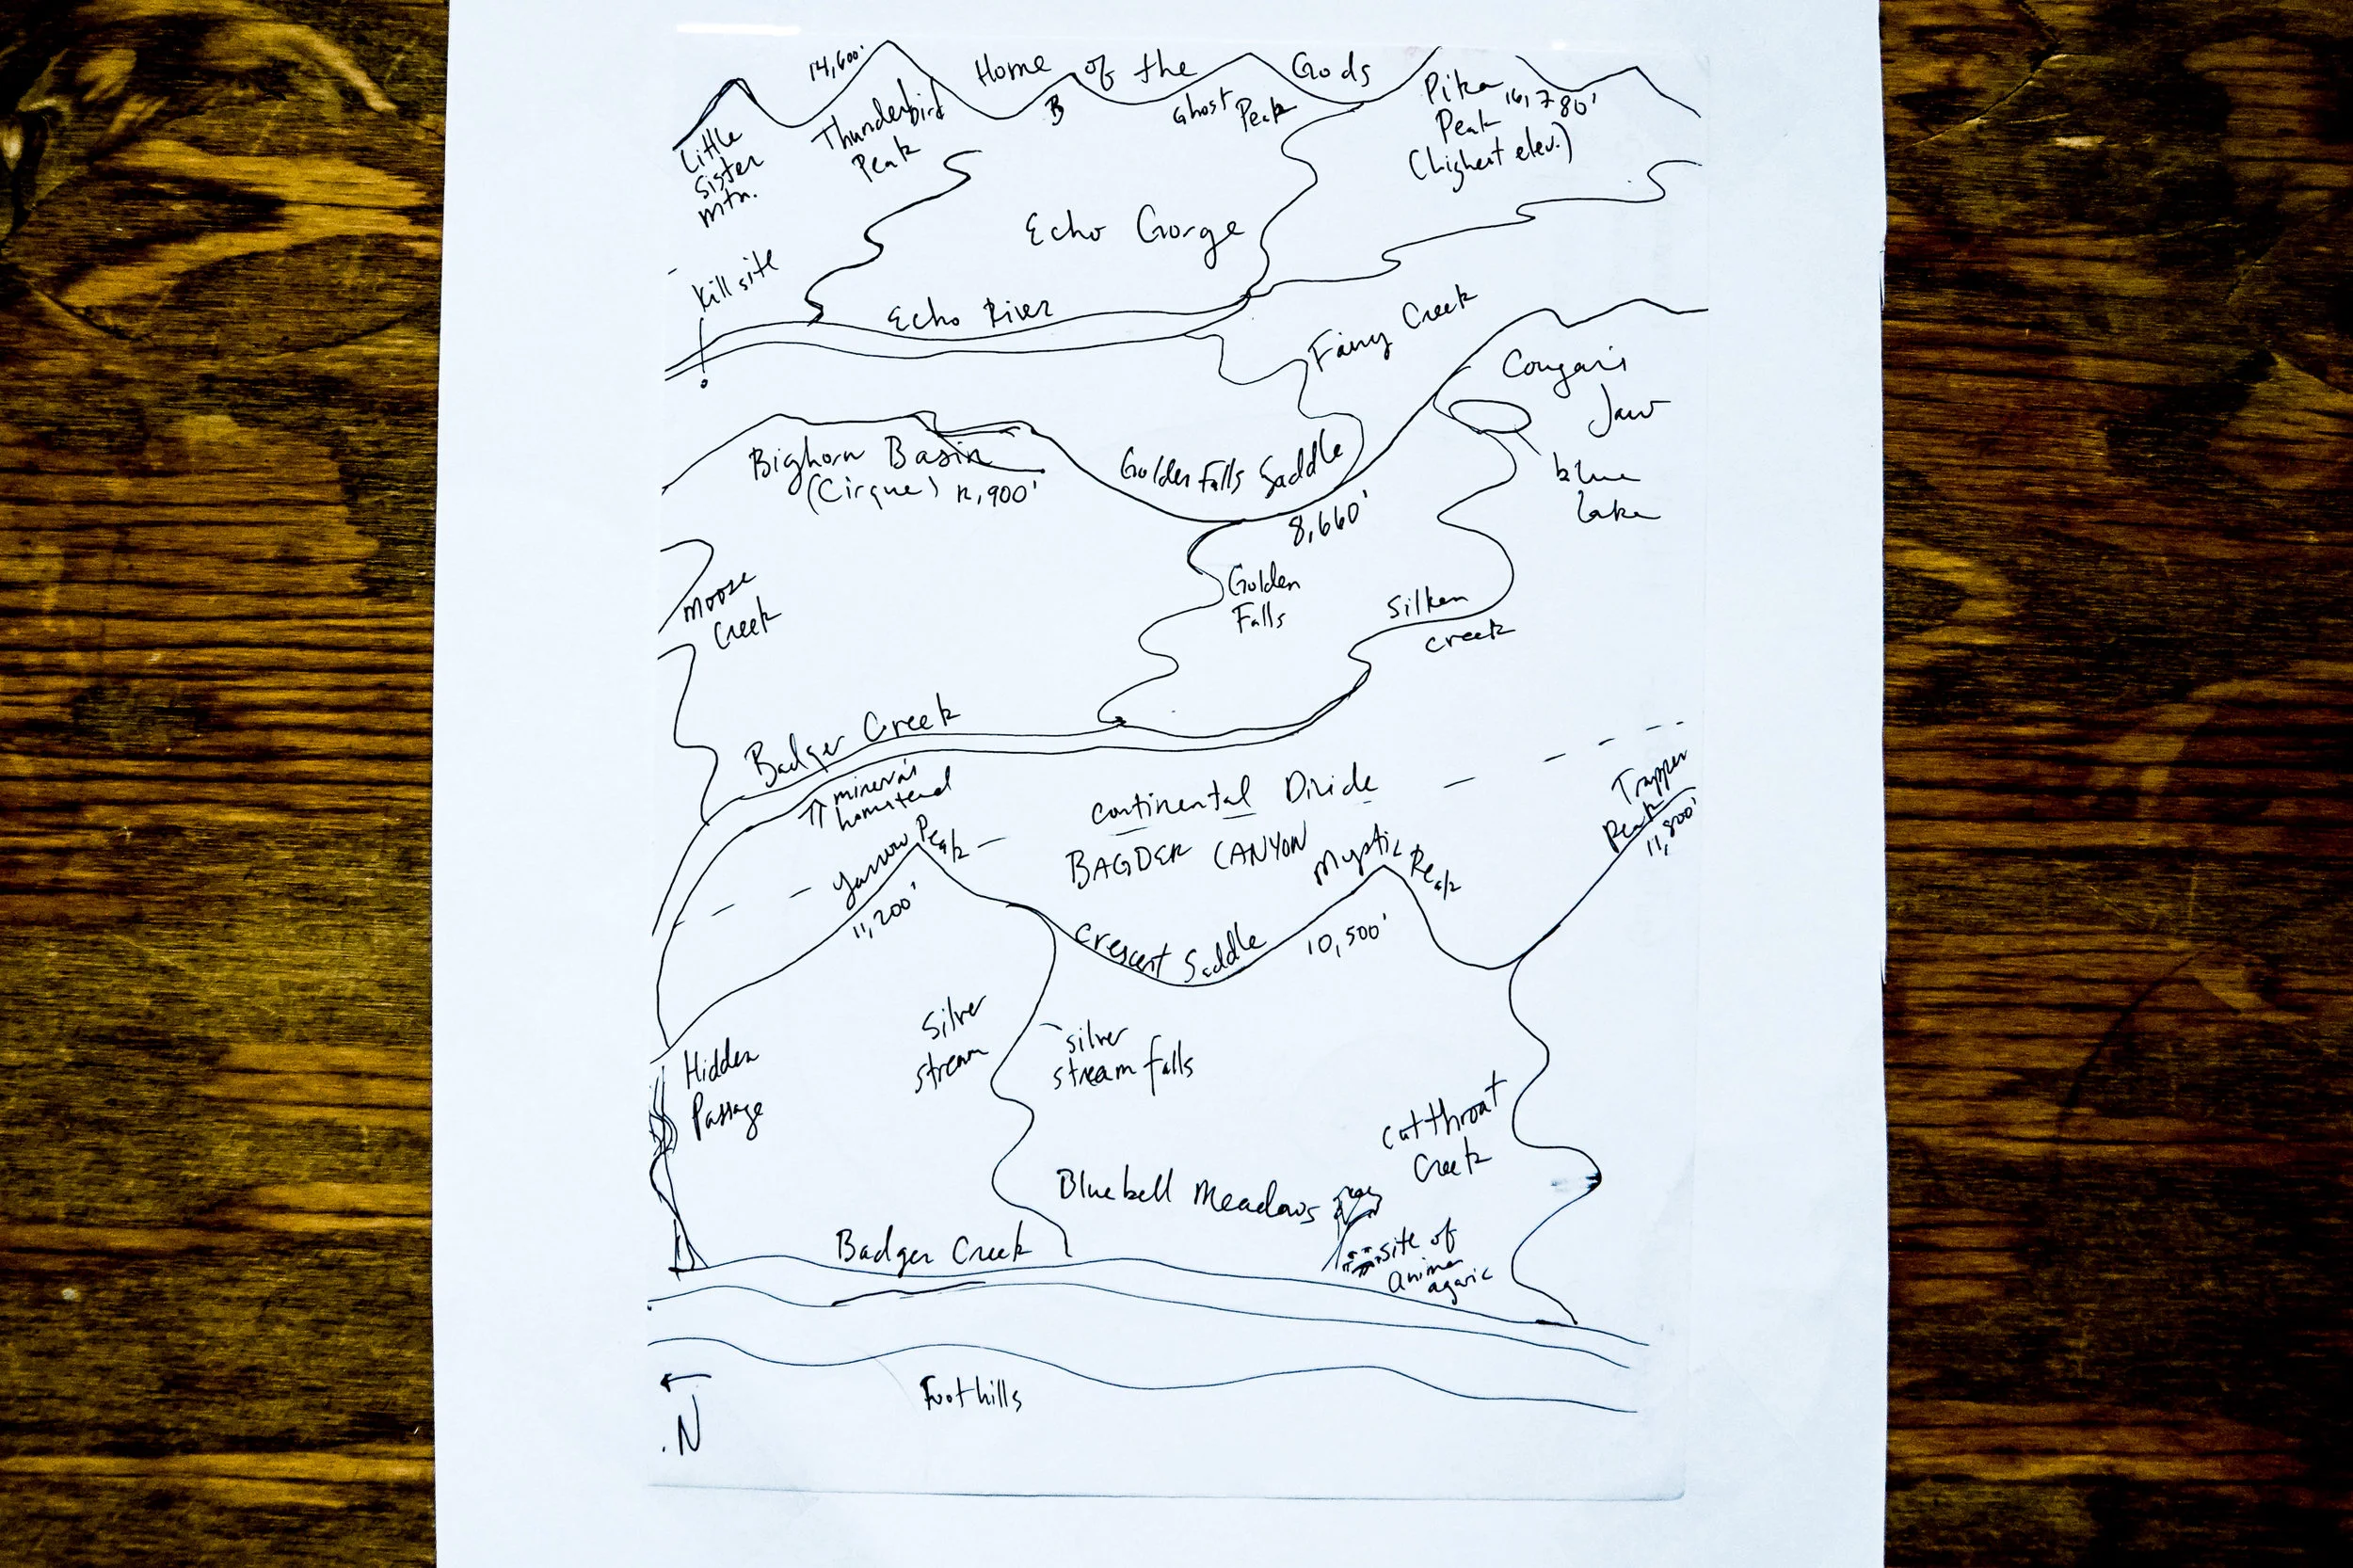 14,600'
Home of the Gods
Little
Sister
Mtn.
Thunderbird
Peak
B
Ghost Peak
Pika
Peak 16,780'
(highest elev.)
Echo Gorge
Kill site
Echo River
Fairy Creek
Cougar's
Jaw
Bighorn Basin
(Cirque) 12,900'
Golden Falls Saddle
8,660'
blue
lake
Moose
Creek
Golden
Falls
Silken
creek
Badger Creek
minerva's
homstead
Continental Divide
BAGDER CANYON
Trapper
Peak
11,800'
Yarrow Peak
11,200'
Mystic Peak
10,500'
Crescent Saddle
Hidden
Passage
Silver
stream
silver
stream falls
Cutthroat
Creek
Bluebell Meadows
Badger Creek
site of
anima
agaric
Foothills
N